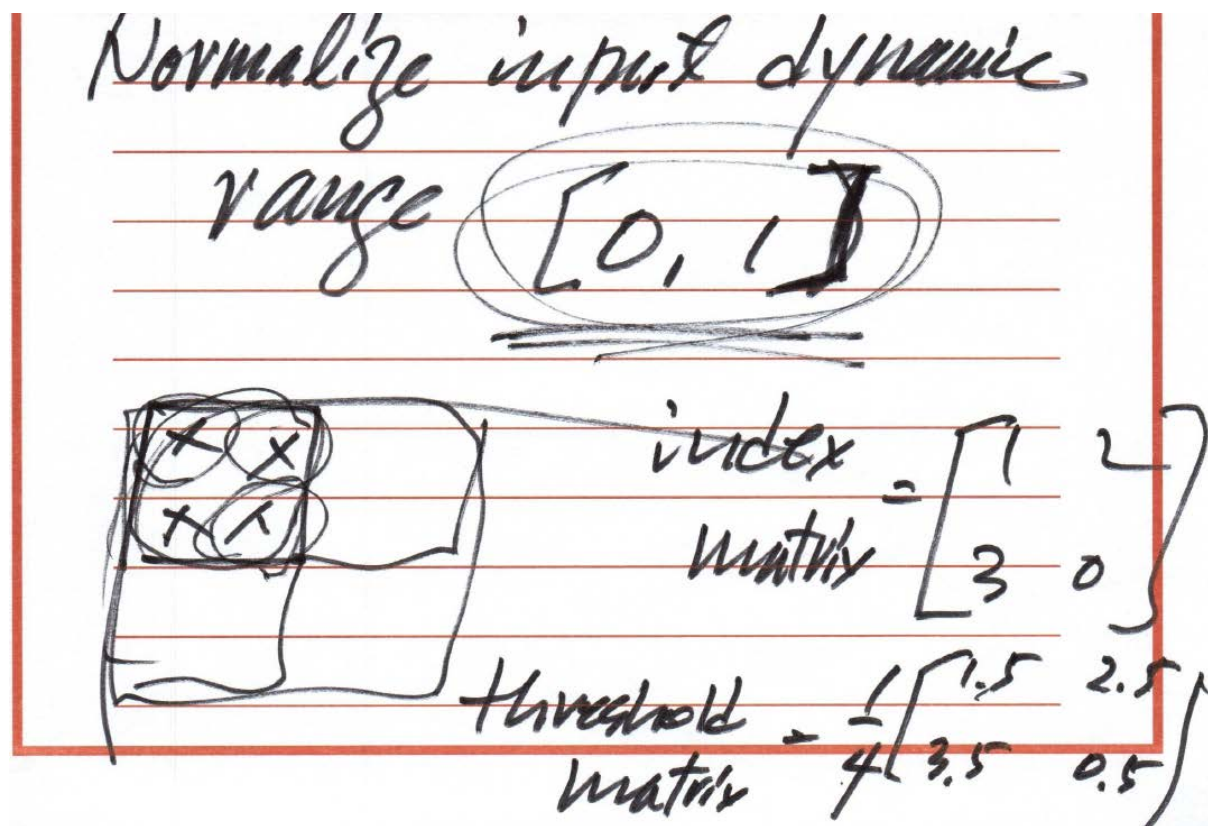 Normalize input dynamic
range [0, 1]
index matrix = [1 2
3 0]
threshold matrix = 1/4 [1.5 2.5
3.5 0.5]